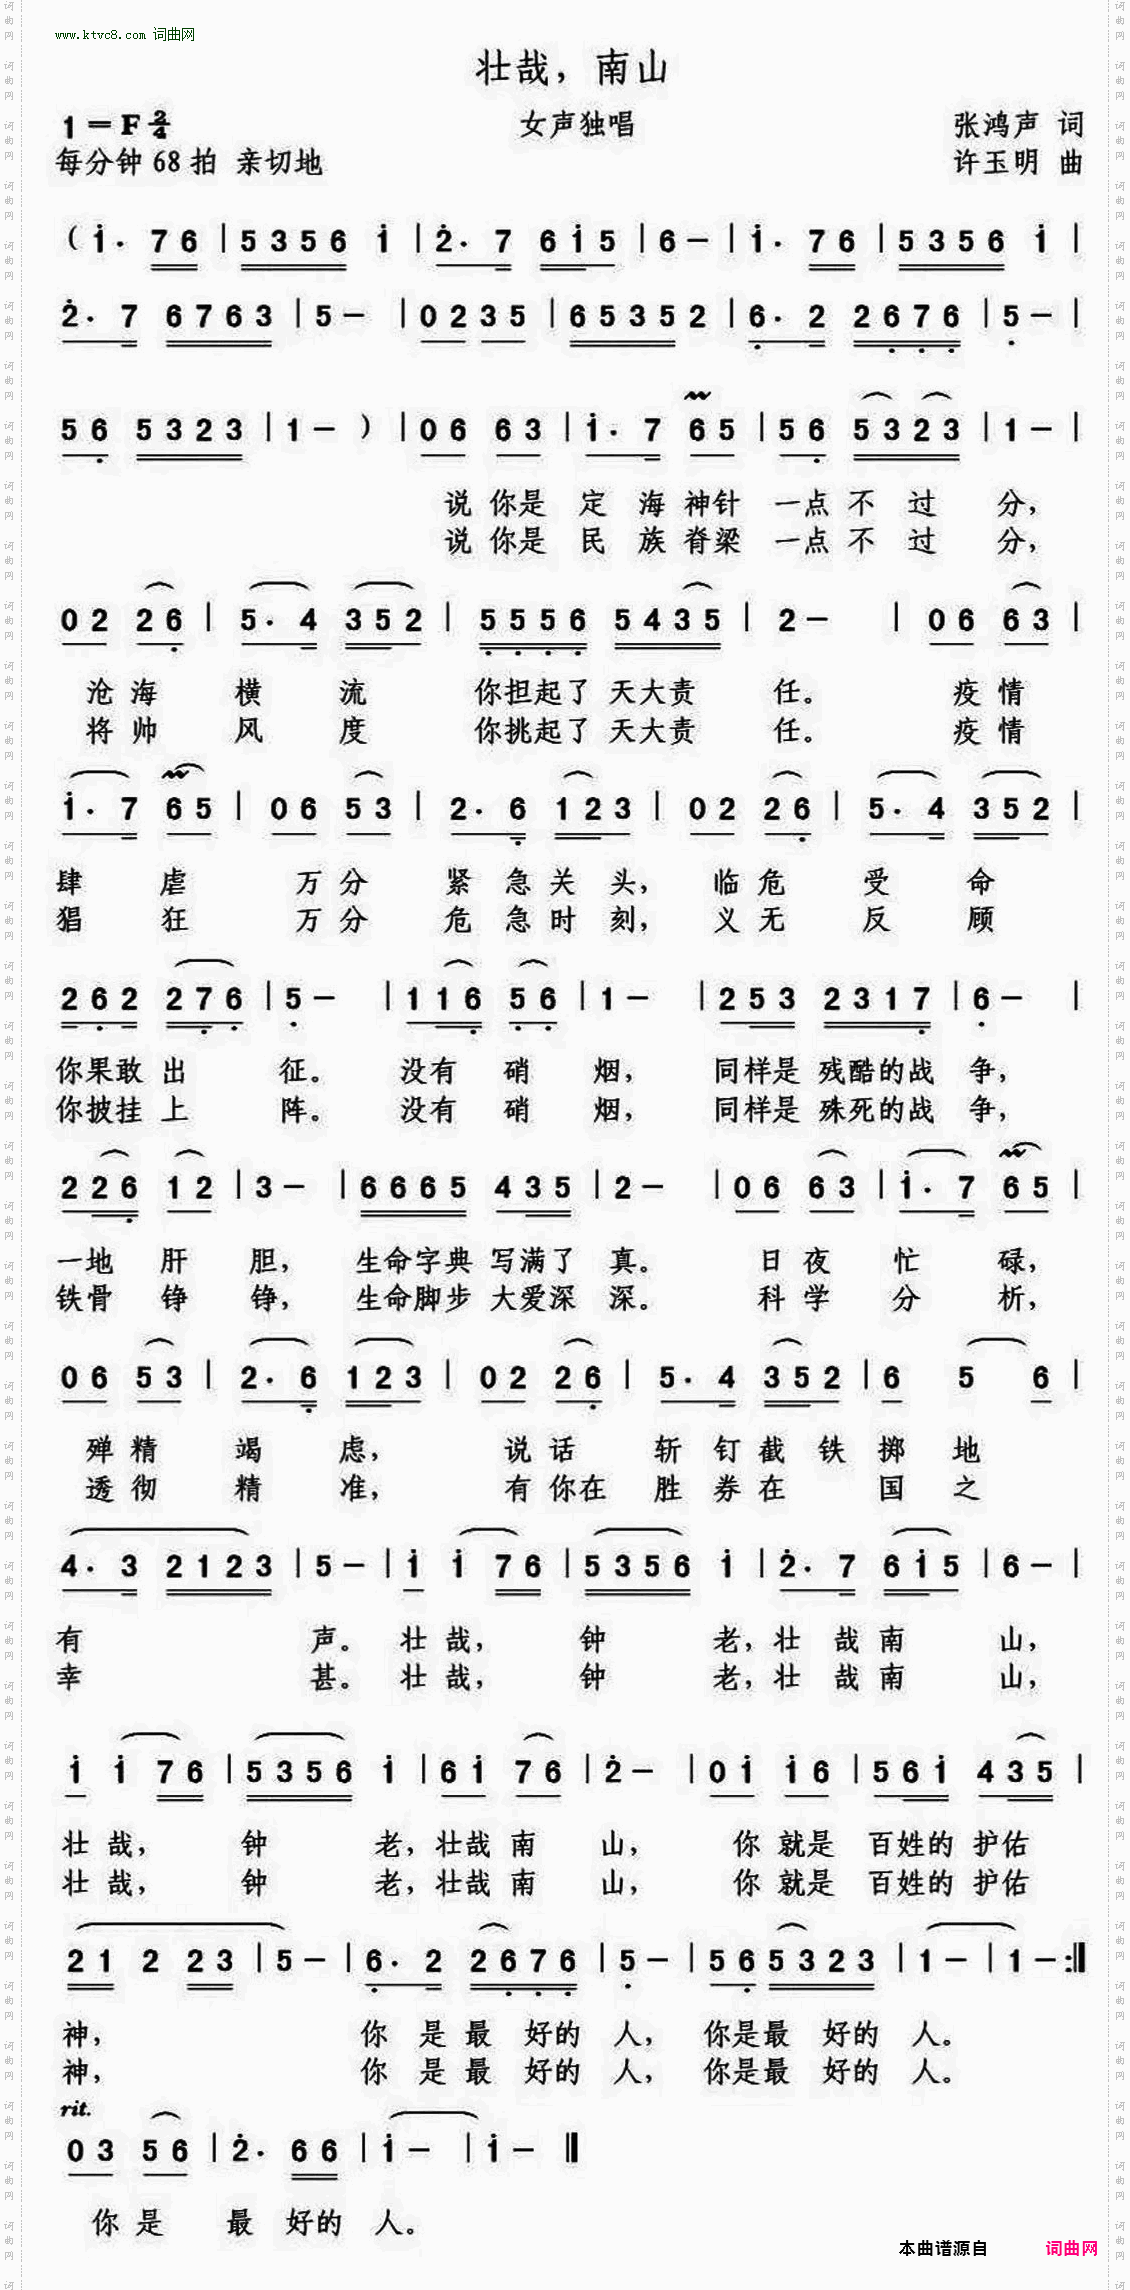 www.ktvc8.com 词曲网
壮哉，南山
1=F 2/4 女声独唱 张鸿声 词
每分钟 68 拍 亲切地 许玉明 曲
( i· 76 | 5356 i | 2̇· 7 6i5 | 6 - | i· 76 | 5356 i |
2̇· 7 6763 | 5 - | 02 35 | 65352 | 6̣· 2 26̣7̣6̣ | 5̣ - |
56̣ 5323 | 1 - ) | 06 63 | i· 7 65 | 56̣ 5323 | 1 - |
说 你是 定 海 神针 一点 不 过 分，
说 你是 民 族 脊梁 一点 不 过 分，
02 26̣ | 5· 4 352 | 5̣5̣5̣6̣ 5435 | 2 - | 06 63 |
沧 海 横 流 你担起了 天大责 任。 疫 情
将 帅 风 度 你挑起了 天大责 任。 疫 情
i· 7 65 | 06 53 | 2· 6̣ 123 | 02 26̣ | 5· 4 352 |
肆 虐 万 分 紧 急 关 头， 临 危 受 命
猖 狂 万 分 危 急 时 刻， 义 无 反 顾
26̣2 27̣6̣ | 5̣ - | 116̣ 5̣6̣ | 1 - | 253 2317̣ | 6̣ - |
你果敢 出 征。 没有 硝 烟， 同样是 残酷的战 争，
你披挂 上 阵。 没有 硝 烟， 同样是 殊死的战 争，
226̣ 12 | 3 - | 6665 435 | 2 - | 06 63 | i· 7 65 |
一地 肝 胆， 生命字典 写满了 真。 日 夜 忙 碌，
铁骨 铮 铮， 生命脚步 大爱深 深。 科 学 分 析，
06 53 | 2· 6̣ 123 | 02 26̣ | 5· 4 352 | 6 5 6 |
殚 精 竭 虑， 说 话 斩 钉 截 铁 掷 地
透 彻 精 准， 有 你在 胜 券 在 国 之
4· 3 2123 | 5 - | i i 76 | 5356 i | 2̇· 7 6i5 | 6 - |
有 声。 壮 哉， 钟 老，壮 哉 南 山，
幸 甚。 壮 哉， 钟 老，壮 哉 南 山，
i i 76 | 5356 i | 6i 76 | 2̇ - | 0i i6 | 56i 435 |
壮 哉， 钟 老，壮哉 南 山， 你 就是 百姓的 护佑
壮 哉， 钟 老，壮哉 南 山， 你 就是 百姓的 护佑
21 2 23 | 5 - | 6̣· 2 26̣7̣6̣ | 5̣ - | 56̣ 5323 | 1 - | 1 - :‖
神， 你 是 最 好的 人， 你是最 好的 人。
神， 你 是 最 好的 人， 你是最 好的 人。
rit.
03 56 | 2̇· 66 | i - | i - ‖
你 是 最 好的 人。
本曲谱源自 词曲网